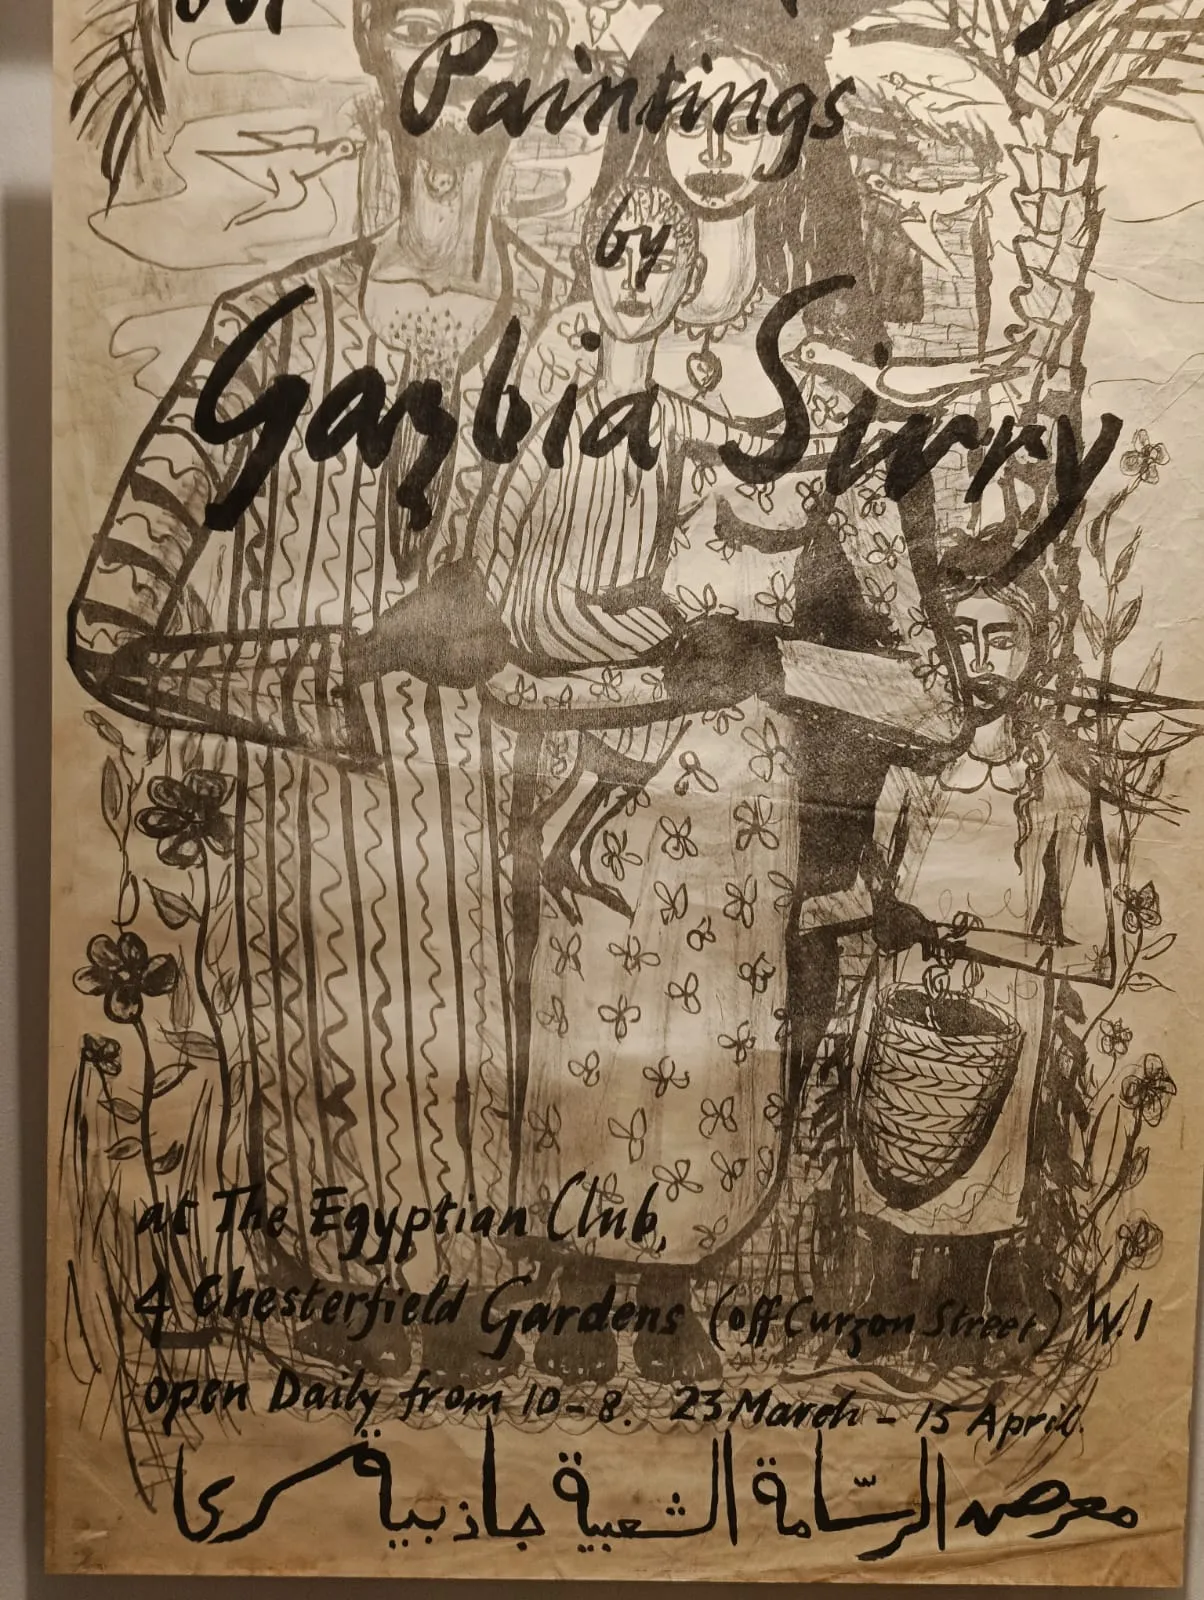 Paintings
by
Gazbia Sirry
at The Egyptian Club,
4 Chesterfield Gardens (off Curzon Street) W.1
open Daily from 10-8. 23 March - 15 April.
معرض الرسّامة الشعبية جاذبية سرى